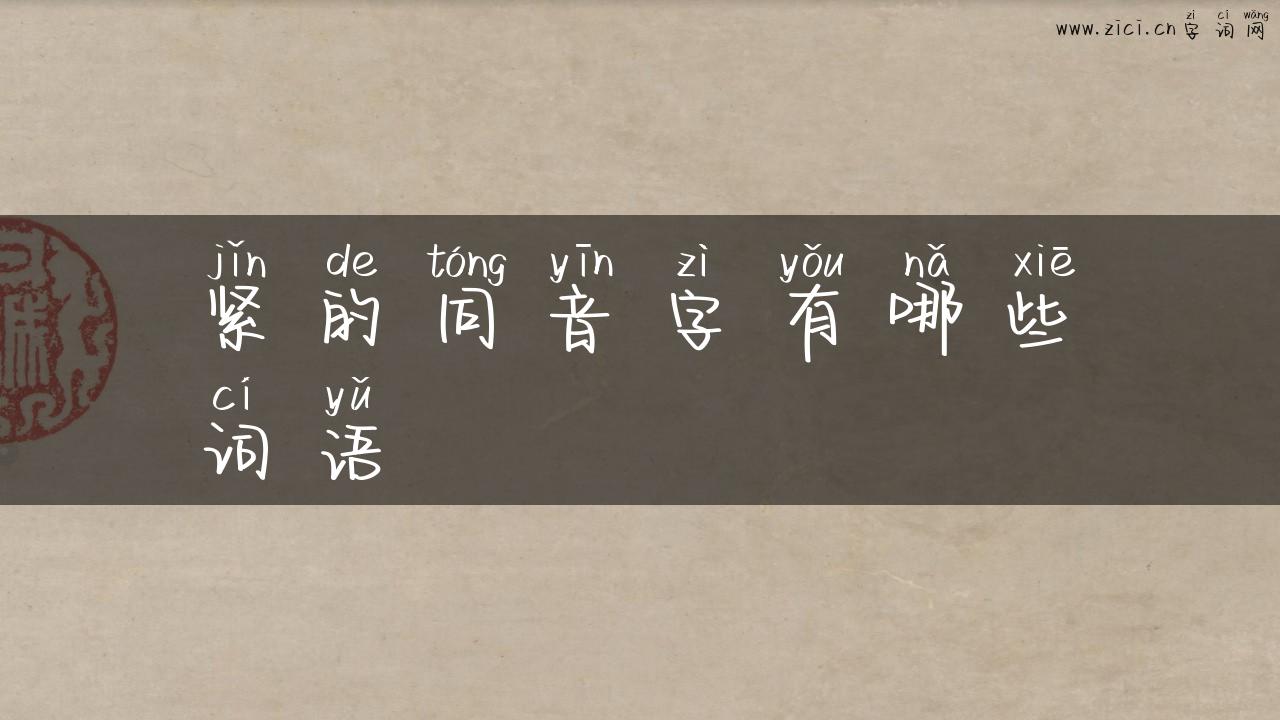 zì cí wǎng
www.zici.cn字词网
jǐn de tóng yīn zì yǒu nǎ xiē
紧的同音字有哪些
cí yǔ
词语